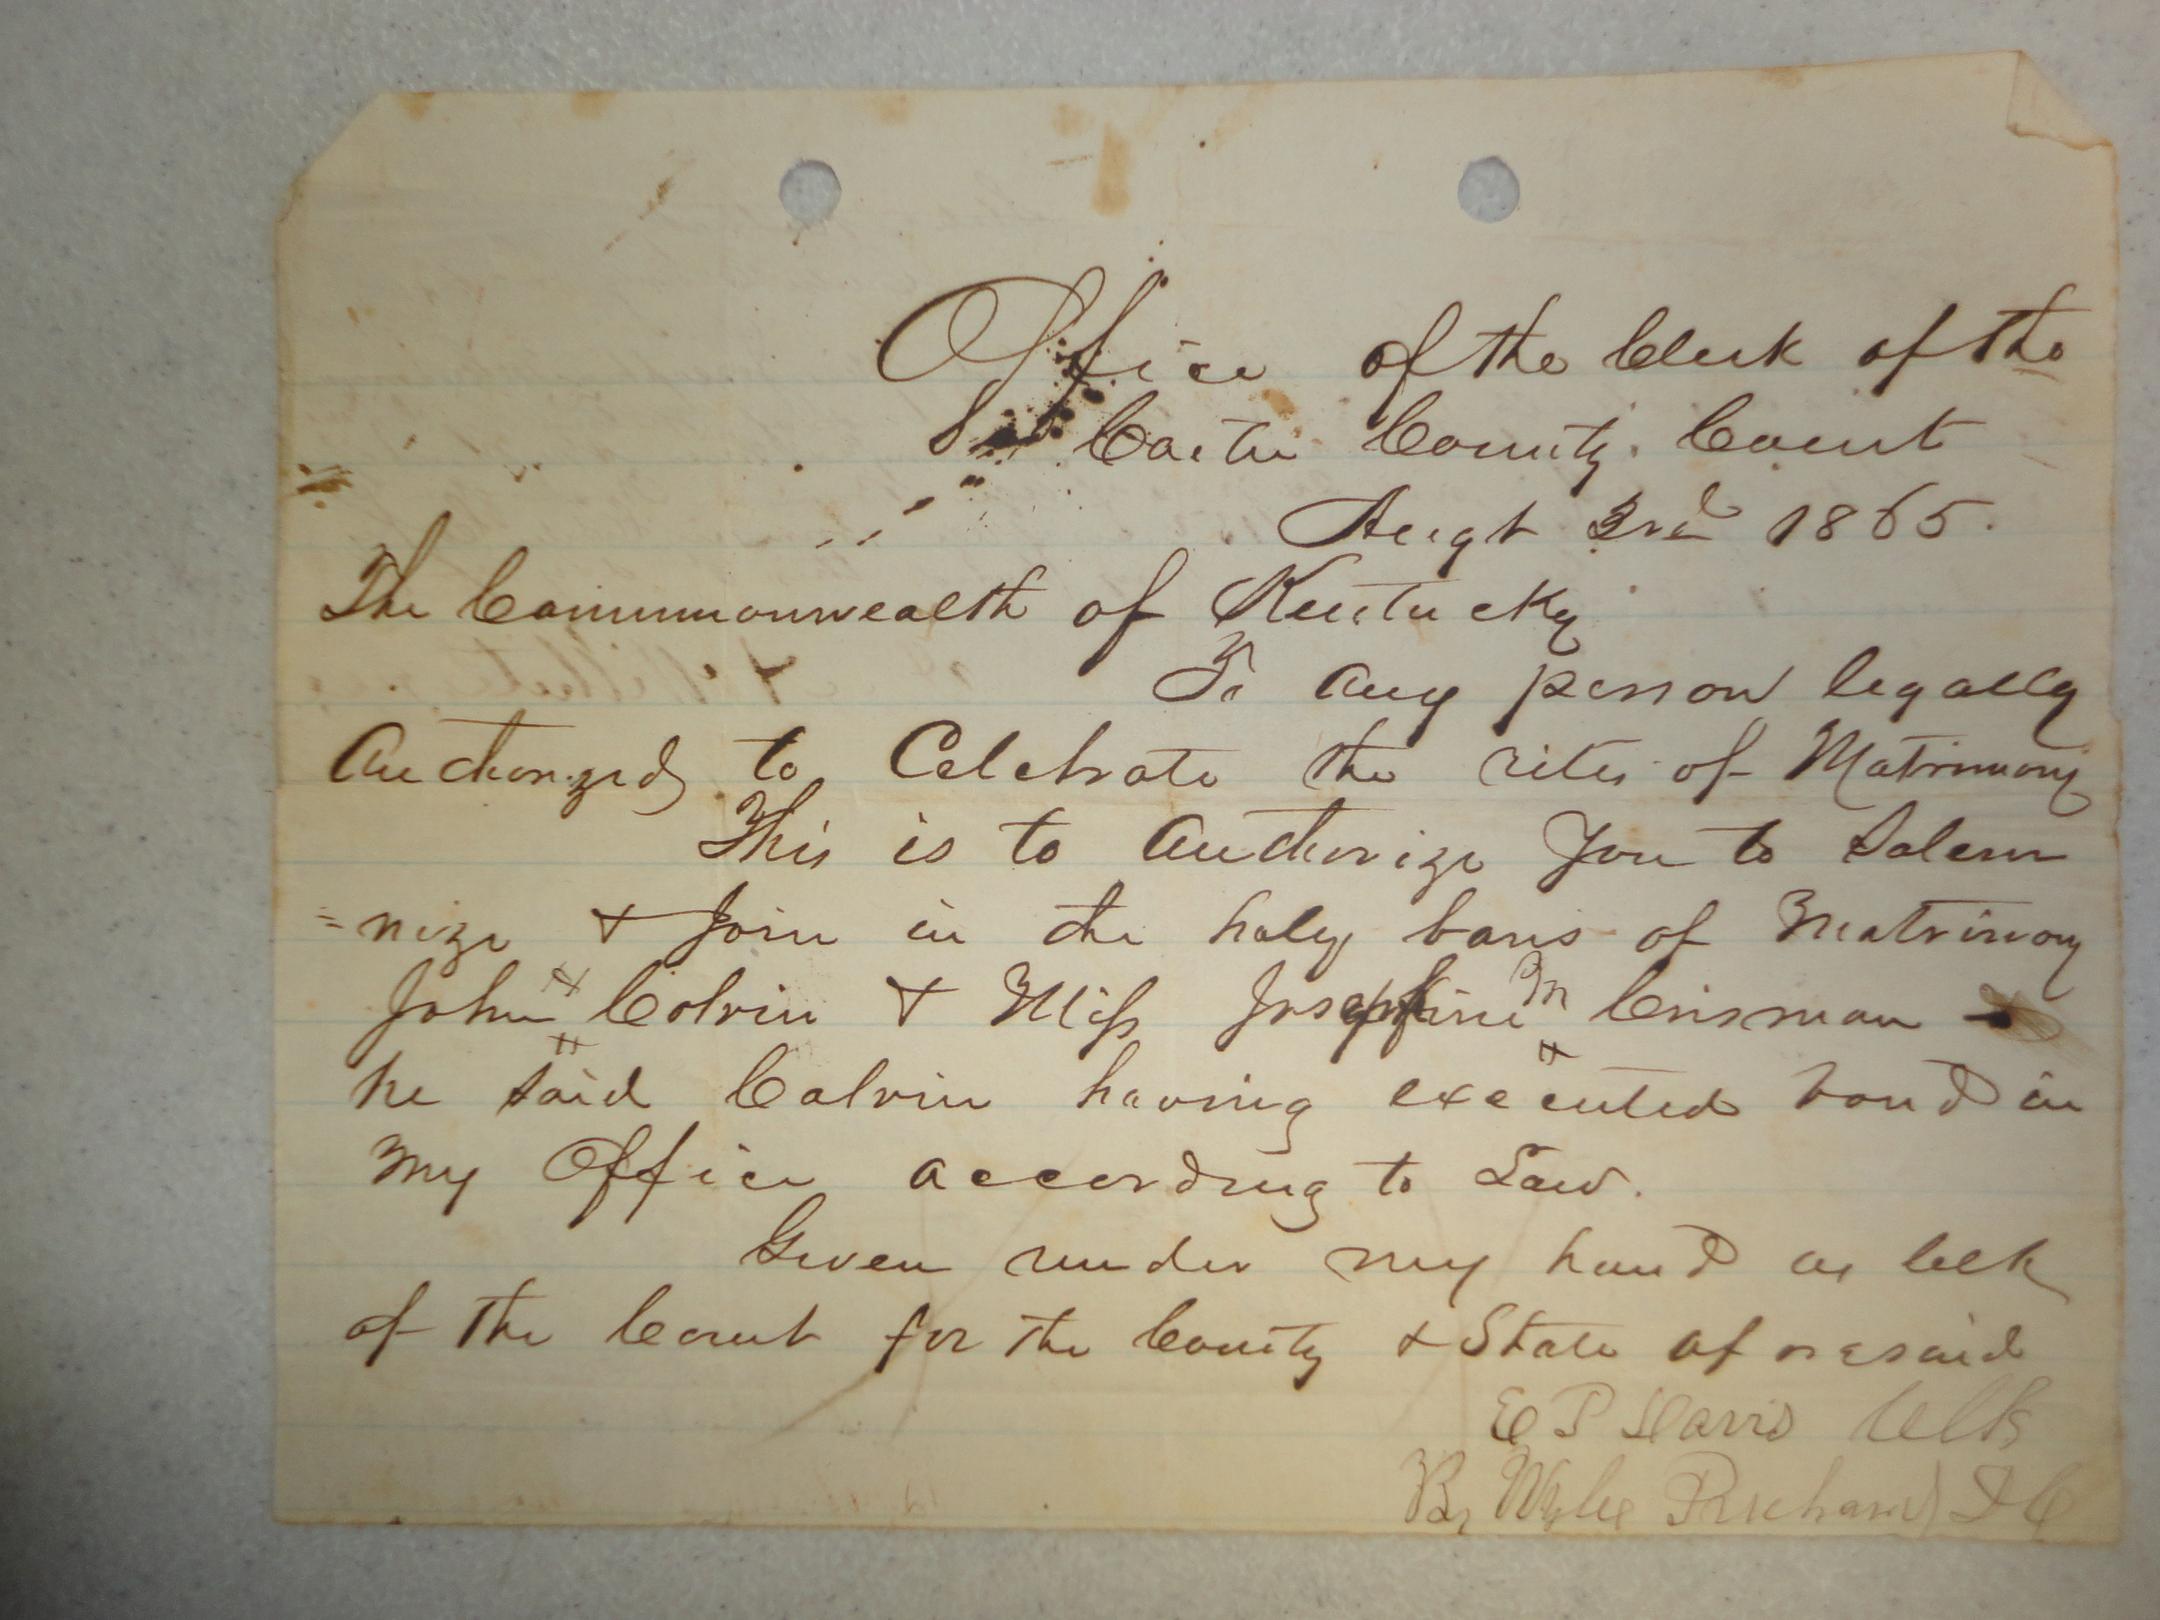 Office of the Clerk of the
Carter County Court
Augt 3rd 1865.
The Commonwealth of Kentucky
To any person legally
Authorized to Celebrate the rites of Matrimony
This is to Authorize You to Solem
=nize & Join in the holy bans of Matrimony
John Colvin & Miss Josephine M Crisman
he said Colvin having executed bond in
my Office according to Law.
Given under my hand as Clk
of the Court for the County & State aforesaid
E P Davis Clk
By Wylie Prichard D C